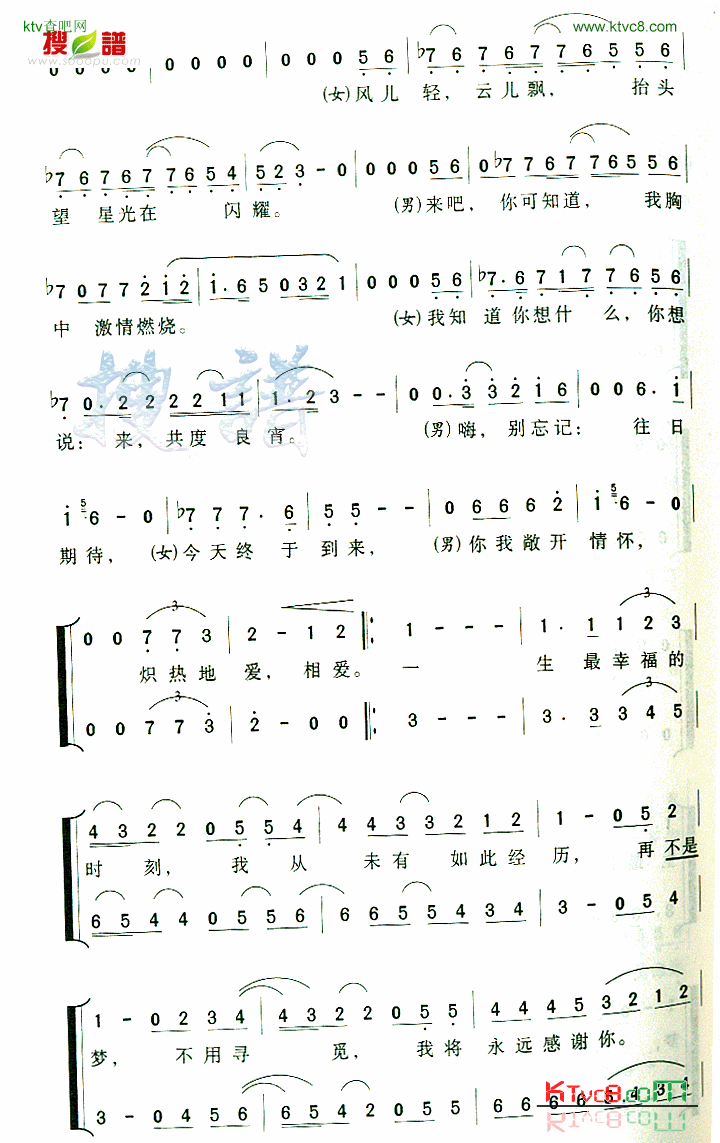 ktv查吧网 www.ktvc8.com
搜谱
www.sooopu.com
0 0 0 0 | 0 0 0 0 | 0 0 0 5 6 | b7 6 7 6 7 7 6 5 5 6
(女)风儿 轻，云儿飘， 抬头
b7 6 7 6 7 7 6 5 4 | 5 2 3 - 0 | 0 0 0 5 6 | 0 b7 7 6 7 7 6 5 5 6
望 星光在 闪耀。 (男)来吧，你可知道， 我胸
b7 0 7 7 2 1 2 | 1 . 6 5 0 3 2 1 | 0 0 0 5 6 | b7 . 6 7 1 7 7 6 5 6
中 激情燃烧。 (女)我知 道你想什 么，你想
b7 0 . 2 2 2 2 1 1 | 1 . 2 3 - - | 0 0 . 3 3 2 1 6 | 0 0 6 . 1
说：来，共度良宵。 (男)嗨，别忘记：往日
1 5 6 - 0 | b7 7 7 . 6 | 5 5 - - | 0 6 6 6 2 | 1 5 6 - 0
期待，(女)今天终 于到来， (男)你我敞开 情怀，
0 0 7 7 3 | 2 - 1 2 :| 1 - - - | 1 . 1 1 2 3
炽热地 爱，相爱。一 生 最幸福的
0 0 7 7 3 | 2 - 0 0 :| 3 - - - | 3 . 3 3 4 5
4 3 2 2 0 5 5 4 | 4 4 3 3 2 1 2 | 1 - 0 5 2
时 刻， 我 从 未有 如此经 历，再不是
6 5 4 4 0 5 5 6 | 6 6 5 5 4 3 4 | 3 - 0 5 4
1 - 0 2 3 4 | 4 3 2 2 0 5 5 | 4 4 4 5 3 2 1 2
梦， 不用寻 觅， 我将 永远感谢你。
3 - 0 4 5 6 | 6 5 4 2 0 5 5 | 6 6 6 6 5 . 4 3 1
KTvc8.com